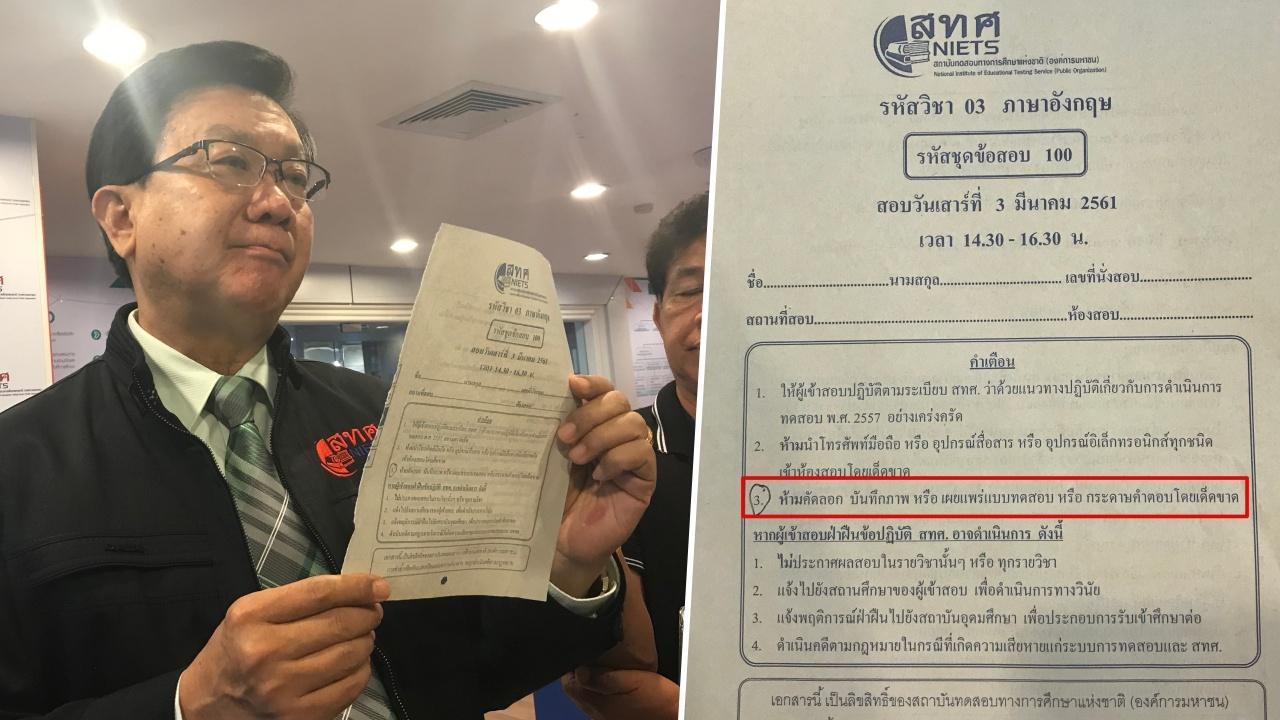 สทศ
NIETS
รหัสวิชา 03 ภาษาอังกฤษ
รหัสชุดข้อสอบ 100
สอบวันเสาร์ที่ 3 มีนาคม 2561
เวลา 14.30 - 16.30 น.
สทศ
NIETS
สทศ
NIETS
สถาบันทดสอบทางการศึกษาแห่งชาติ (องค์การมหาชน)
National Institute of Educational Testing Service (Public Organization)
รหัสวิชา 03 ภาษาอังกฤษ
รหัสชุดข้อสอบ 100
สอบวันเสาร์ที่ 3 มีนาคม 2561
เวลา 14.30 - 16.30 น.
ชื่อ........................นามสกุล........................ เลขที่นั่งสอบ........................
สถานที่สอบ................................................ห้องสอบ........................
คำเตือน
1. ให้ผู้เข้าสอบปฏิบัติตามระเบียบ สทศ. ว่าด้วยแนวทางปฏิบัติเกี่ยวกับการดำเนินการ
ทดสอบ พ.ศ. 2557 อย่างเคร่งครัด
2. ห้ามนำโทรศัพท์มือถือ หรือ อุปกรณ์สื่อสาร หรือ อุปกรณ์อิเล็กทรอนิกส์ทุกชนิด
เข้าห้องสอบโดยเด็ดขาด
3. ห้ามคัดลอก บันทึกภาพ หรือ เผยแพร่แบบทดสอบ หรือ กระดาษคำตอบโดยเด็ดขาด
หากผู้เข้าสอบฝ่าฝืนข้อปฏิบัติ สทศ. อาจดำเนินการ ดังนี้
1. ไม่ประกาศผลสอบในรายวิชานั้นๆ หรือ ทุกรายวิชา
2. แจ้งไปยังสถานศึกษาของผู้เข้าสอบ เพื่อดำเนินการทางวินัย
3. แจ้งพฤติการณ์ฝ่าฝืนไปยังสถาบันอุดมศึกษา เพื่อประกอบการรับเข้าศึกษาต่อ
4. ดำเนินคดีตามกฎหมายในกรณีที่เกิดความเสียหายแก่ระบบการทดสอบและ สทศ.
เอกสารนี้ เป็นลิขสิทธิ์ของสถาบันทดสอบทางการศึกษาแห่งชาติ (องค์การมหาชน)